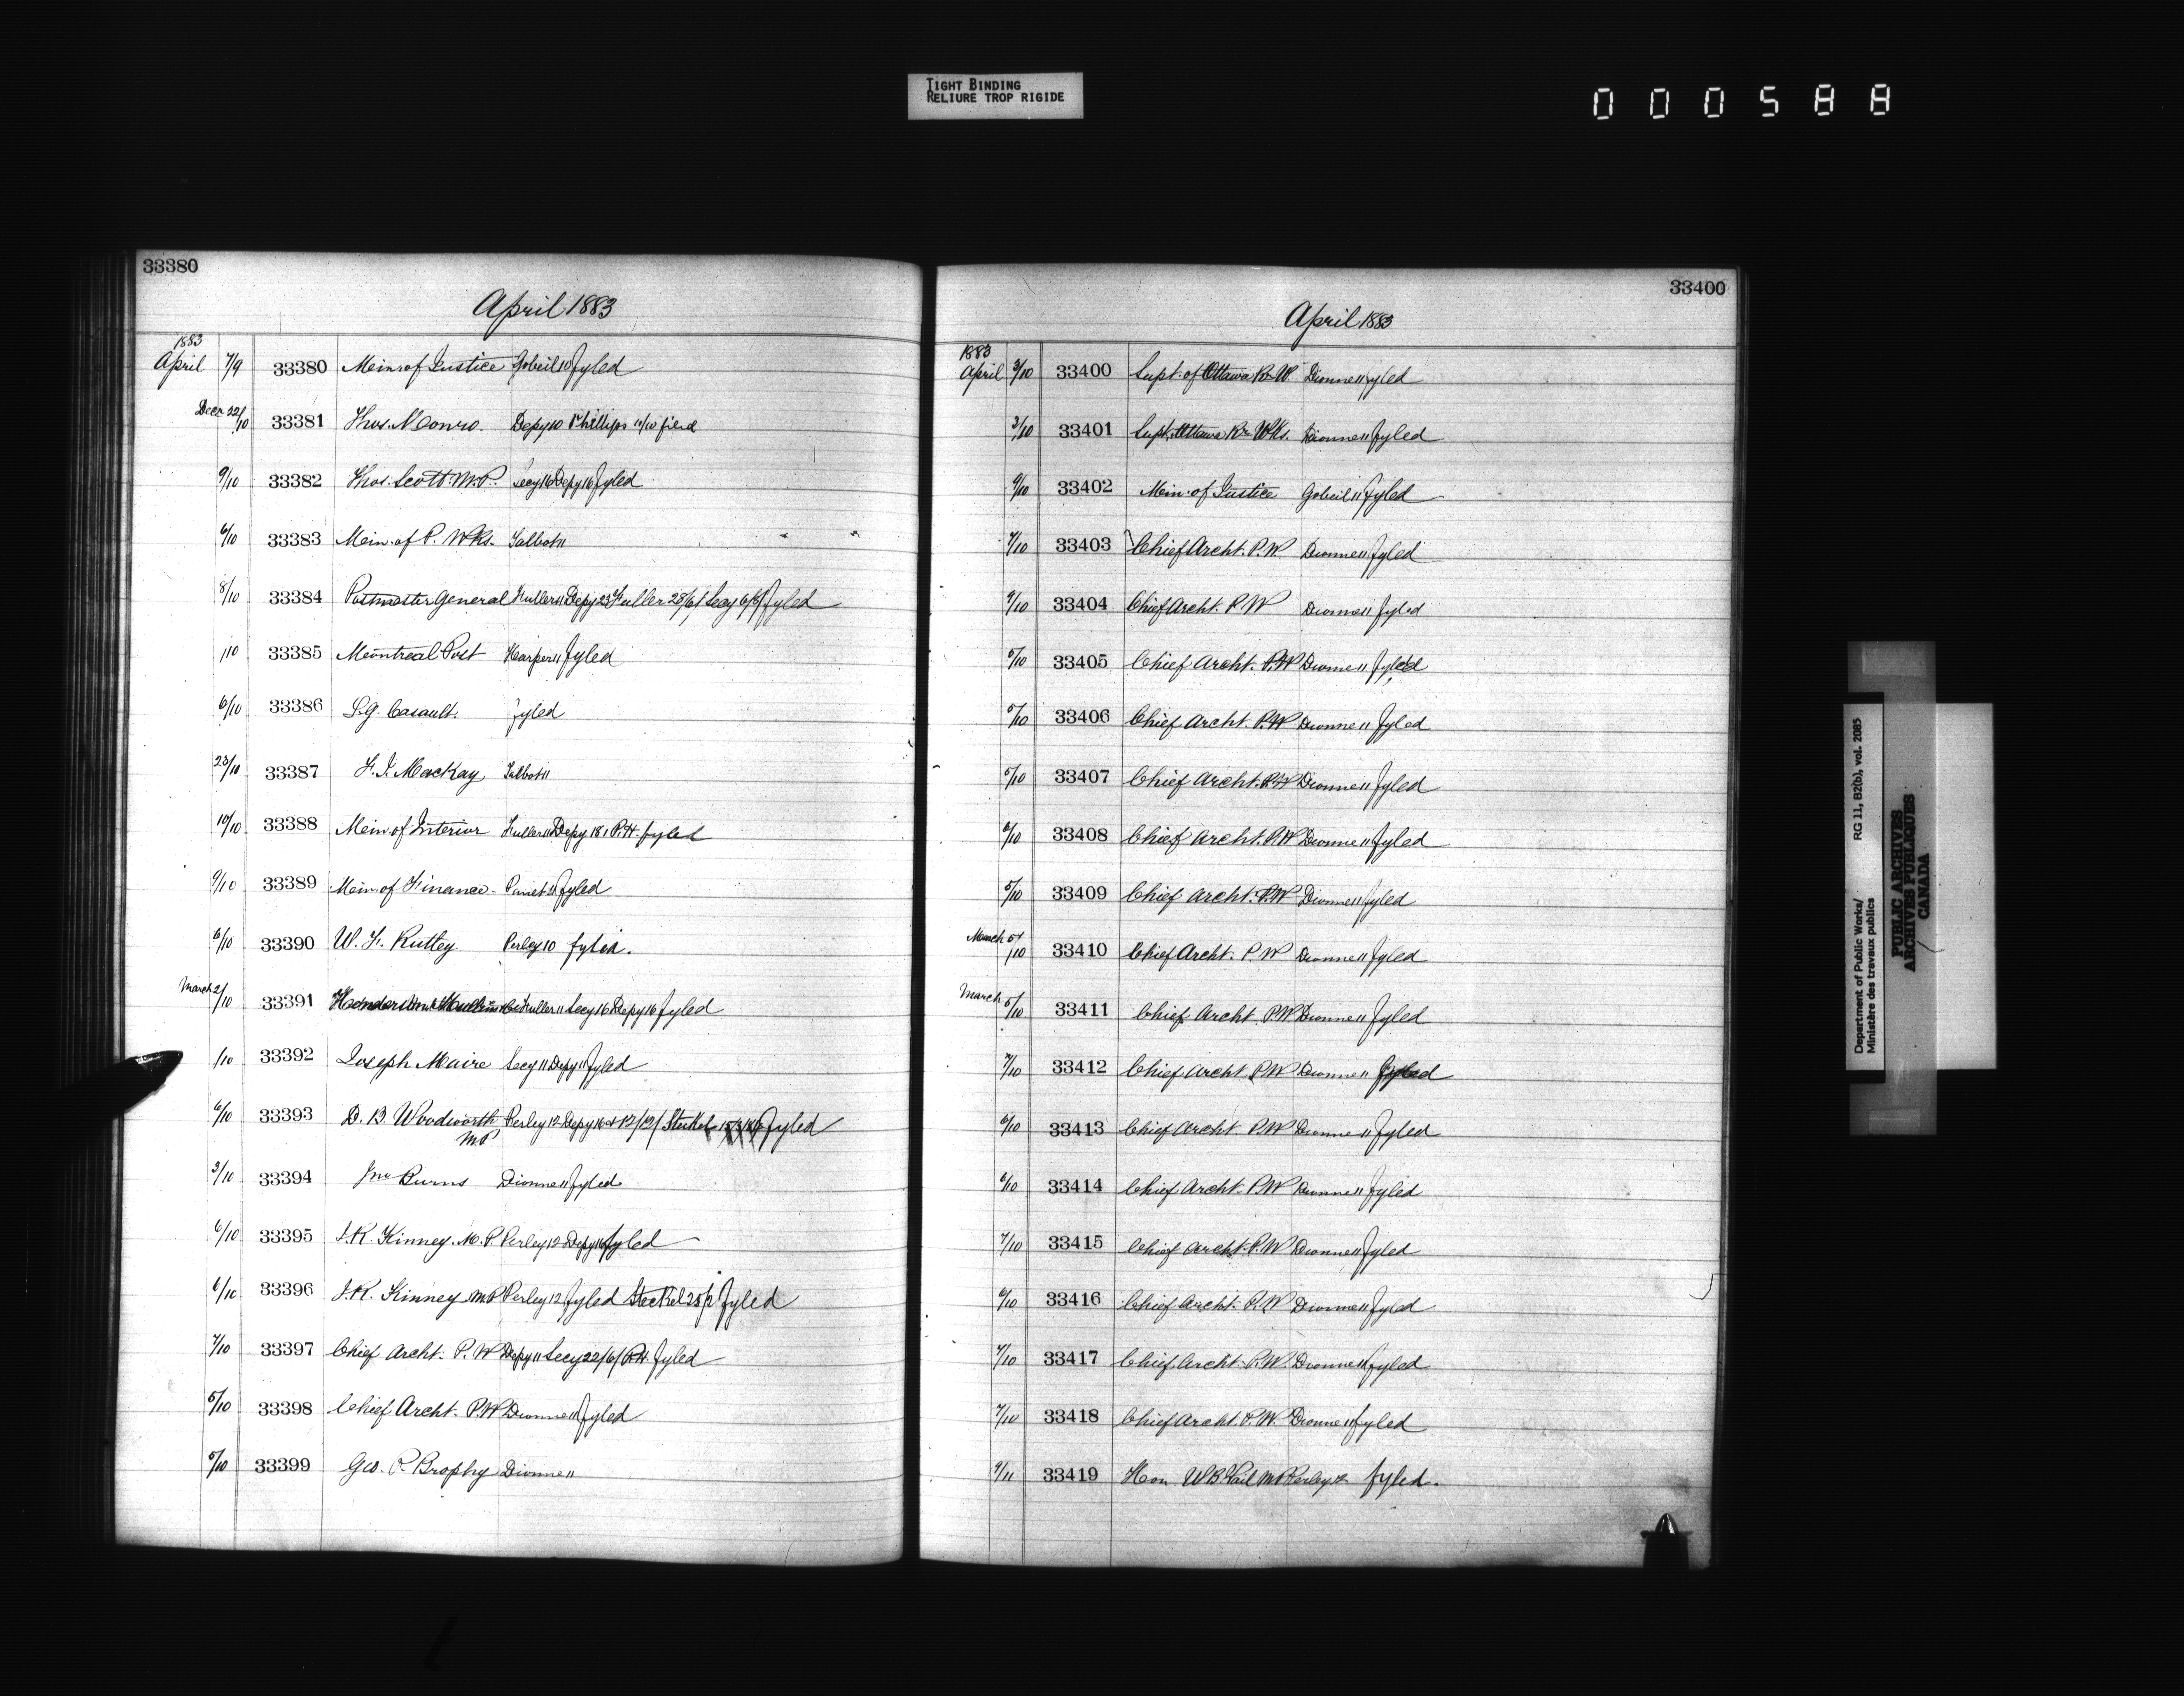 TIGHT BINDING
RELIURE TROP RIGIDE
000588
33380
April 1883
1883
April 7/9 33380 Min. of Justice Gobeil 10 fyled
Decr 22/10 33381 Thos. Monro. Depy 10 Phillips 11/10 filed
9/10 33382 Thos. Scott M.P. Secy 16 Depy 16 fyled
6/10 33383 Min. of P. Wks. Talbot 11
8/10 33384 Postmaster General Fuller 11 Depy 23 Fuller 28/6/ Secy 6/9/ fyled
/10 33385 Montreal Post Harper 11 fyled
6/10 33386 L.G. Casault. fyled
23/10 33387 F. J. Mackay Talbot 11
10/10 33388 Min. of Interior Fuller 11 Depy 18 P.H. fyled
9/10 33389 Min. of Finance - Panet fyled
6/10 33390 W. F. Ruttey Perley 10 fyled.
March 2/10 33391 Fuller 11 Secy 16 Depy 16 fyled
/10 33392 Joseph Maire Secy 11 Depy 11 fyled
6/10 33393 D. B. Woodworth Perley 12 Depy 16 Steckel fyled
MP
3/10 33394 Jno Burns Dionne 11 fyled
6/10 33395 J.R. Kinney. M.P. Perley 12 Depy 16 fyled
6/10 33396 J.R. Kinney MP Perley 12 fyled Steckel 28/2 fyled
7/10 33397 Chief Archt. P.W Depy 11 Secy 22/6/ P.H. fyled
5/10 33398 Chief Archt. P.W Dionne 11 fyled
5/10 33399 Geo. P. Brophy Dionne 11
33400
April 1883
1883
April 3/10 33400 Supt. of Ottawa Rr W. Dionne 11 fyled
3/10 33401 Supt. Ottawa Rr Wks. Dionne 11 fyled
9/10 33402 Min. of Justice Gobeil 11 fyled
7/10 33403 Chief Archt. P.W Dionne 11 fyled
9/10 33404 Chief Archt. P.W Dionne 11 fyled
5/10 33405 Chief Archt. P.W Dionne 11 fyled
5/10 33406 Chief Archt. P.W Dionne 11 fyled
5/10 33407 Chief Archt. P.W Dionne 11 fyled
6/10 33408 Chief Archt. P.W Dionne 11 fyled
5/10 33409 Chief Archt. P.W Dionne 11 fyled
March 5/10 33410 Chief Archt. P.W Dionne 11 fyled
March 5/10 33411 Chief Archt. P.W Dionne 11 fyled
7/10 33412 Chief Archt. P.W Dionne 11 fyled
6/10 33413 Chief Archt. P.W Dionne 11 fyled
6/10 33414 Chief Archt. P.W Dionne 11 fyled
7/10 33415 Chief Archt. P.W Dionne 11 fyled
6/10 33416 Chief Archt. P.W Dionne 11 fyled
7/10 33417 Chief Archt. P.W. Dionne 11 fyled
7/10 33418 Chief Archt. P.W. Dionne 11 fyled
9/11 33419 Hon W.B. Vail MP Perley 12 fyled.
Department of Public Works/ RG 11, B2(b), vol. 2085
Ministère des travaux publics
PUBLIC ARCHIVES
ARCHIVES PUBLIQUES
CANADA